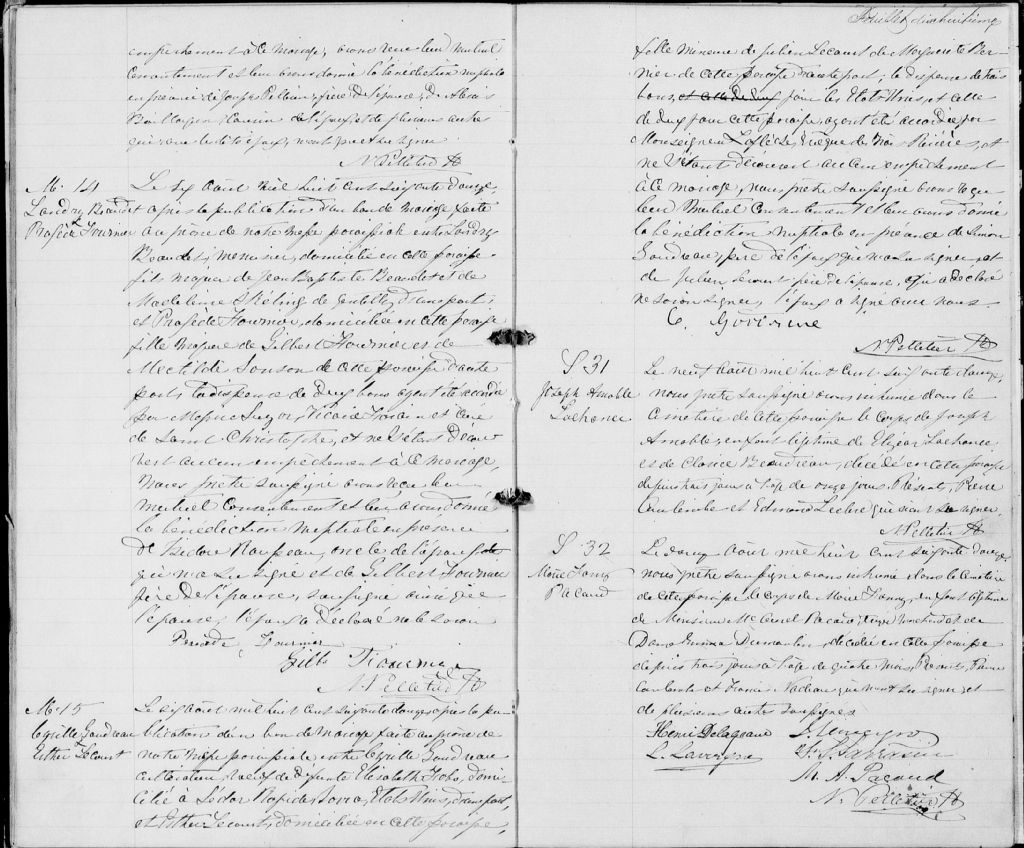 empêchement à ce mariage, avons reçu leur mutuel
Consentement et leur avons donné la bénédiction nuptiale
en présence de Joseph Pelletier, frère de l'épouse, de Alexis
cousin de l'époux, et de plusieurs autres
qui ont signer
N. Pelletier Ptr
M. 14
Landry Beaudet
&
Profède Fournier
Le six août mil huit cent soixante douze,
après la publication d'un ban de mariage faite
au prône de notre messe paroissiale entre Landry
Beaudet, menuisier, domicilié en cette paroisse
fils majeur de Jean Baptiste Beaudet et de
Madeleine de Gentilly, d'une part;
et Profède Fournier, domiciliée en cette paroisse
fille majeure de Gilbert Fournier et de
Mechilde de cette paroisse d'autre
part; la dispense de deux bans ayant été accordée
par Messire Suzor, Vicaire Forain et Curé
de Saint Christophe, et ne s'étant décou-
vert aucun empêchement à ce mariage,
Nous, prêtre soussigné avons reçu leur
mutuel Consentement et leur avons donné
la bénédiction nuptiale en présence
de Isidore oncle de l'époux
qui n'a su signé et de Gilbert Fournier
père de l'épouse, soussigné ainsi que
l'épouse, l'époux a déclaré ne le savoir
Fournier
Gilb Fournier
N. Pelletier Ptr
M. 15
Goudreau
&
Esther Lecourt
Le six août mil huit cent soixante douze, après la pu-
blication d'un ban de mariage faite au prône de
notre messe paroissiale entre Goudreau
cultivateur, veuf de défunte Elisabeth domi-
cilié à Cédar Rapids, Iowa, Etats Unis, d'une part,
et Esther Lecourt, domiciliée en cette paroisse,
Feuillet dixhuitième
fille mineure de Julien Lecourt de Marguerite Ber-
nier de cette paroisse d'autre part; la dispense de trois
bans, et celle de deux pour les Etats Unis, et celle
de deux pour cette paroisse, ayant été accordée par
Monseigneur Laflèche, Evêque des Trois Rivières, et
ne s'étant découvert aucun empêchement
à ce mariage, nous, prêtre soussigné avons reçu
leur mutuel Consentement et leur avons donné
la bénédiction nuptiale en présence de Simon
Goudreau, père de l'époux qui n'a su signer, et
de Julien Lecourt père de l'épouse, qui a déclaré
ne savoir signer, l'époux a signé avec nous.
N. Pelletier Ptr
S 31
Joseph Amable
Lachance
Le neuf août mil huit cent soixante douze,
nous prêtre soussigné avons inhumé dans le
Cimetière de cette paroisse le corps de Joseph
Amable, enfant légitime de Elzear Lachance
et de Clarice Beaudreau, décédé en cette paroisse
depuis trois jours à l'âge de onze jours. Présents, Pierre
et Edmond qui n'ont su signer.
N. Pelletier Ptr
S 32
Marie Fanny
Pacaud
Le douze août mil huit cent soixante douze
nous prêtre soussigné avons inhumé dans le cimetière
de cette paroisse le corps de Marie Fanny, enfant légitime
de Monsieur Pacaud, et de
Dame Emma Dumoulin, décédée en cette paroisse
depuis trois jours à l'âge de quatre mois. Présents, Pierre
et qui n'ont su signer et
de plusieurs autres soussignés
Henri Delagrave
L. Lavergne
M. A. Pacaud
N. Pelletier Ptr